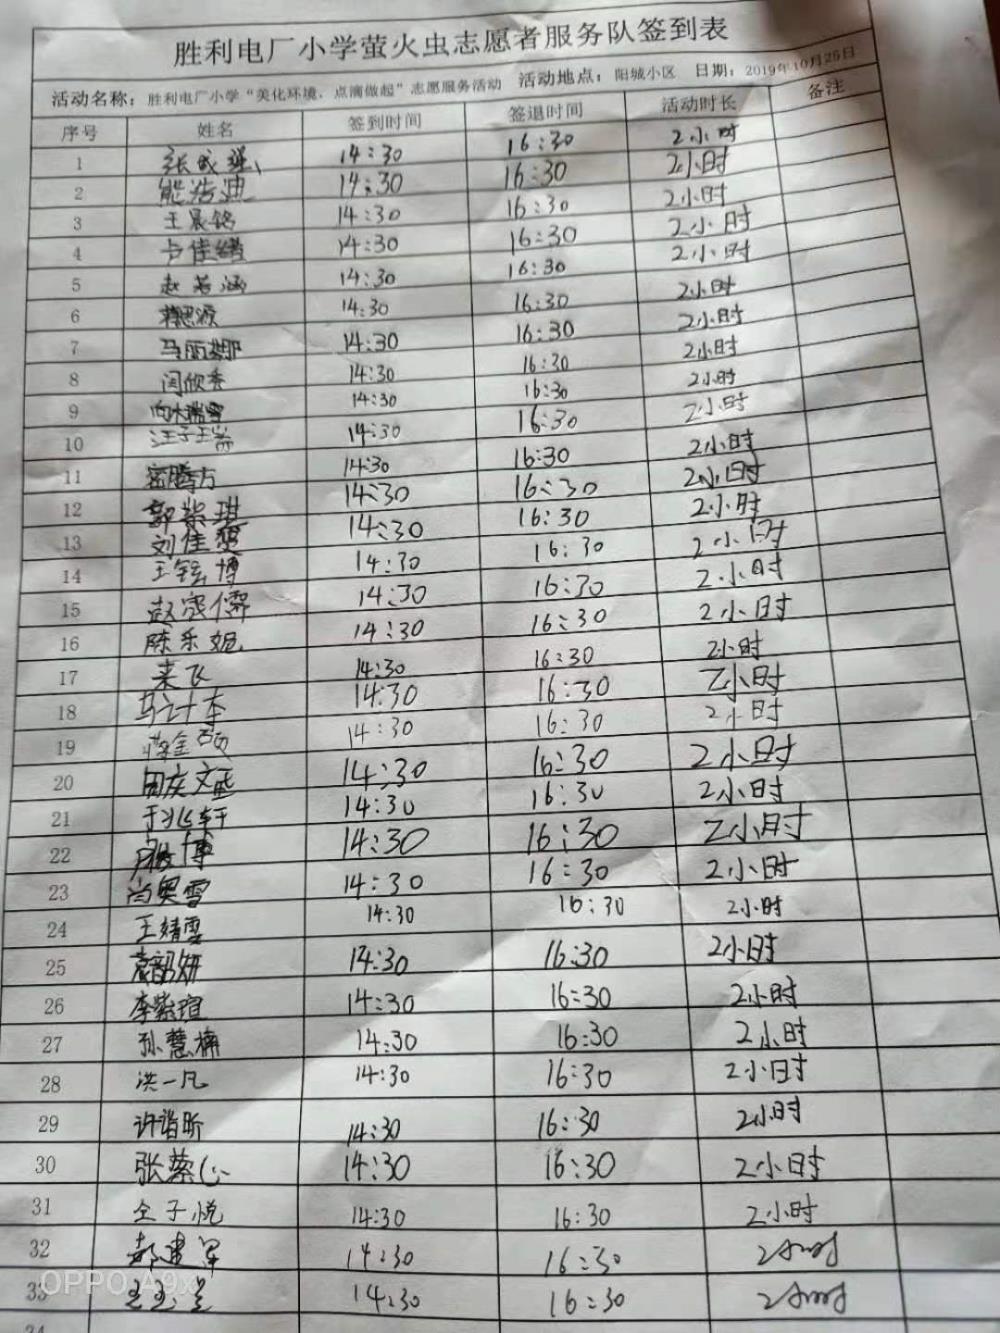 胜利电厂小学萤火虫志愿者服务队签到表
活动名称：胜利电厂小学“美化环境、点滴做起”志愿服务活动 活动地点：阳城小区 日期：2019年10月25日
序号 姓名 签到时间 签退时间 活动时长 备注
1 14:30 16:30 2小时
2 熊浩迪 14:30 16:30 2小时
3 王晨铭 14:30 16:30 2小时
4 卢佳绪 14:30 16:30 2小时
5 赵若涵 14:30 16:30 2小时
6 蒋思源 14:30 16:30 2小时
7 马丽娜 14:30 16:30 2小时
8 闫欣香 14:30 16:30 2小时
9 14:30 16:30 2小时
10 14:30 16:30 2小时
11 14:30 16:30 2小时
12 郭紫琪 14:30 16:30 2小时
13 刘佳慧 14:30 16:30 2小时
14 王铉博 14:30 16:30 2小时
15 14:30 16:30 2小时
16 陈乐妮 14:30 16:30 2小时
17 来飞 14:30 16:30 2小时
18 14:30 16:30 2小时
19 蒋金硕 14:30 16:30 2小时
20 14:30 16:30 2小时
21 于兆轩 14:30 16:30 2小时
22 14:30 16:30 2小时
23 尚奥雪 14:30 16:30 2小时
24 王婧雯 14:30 16:30 2小时
25 袁韶妍 14:30 16:30 2小时
26 李紫瑄 14:30 16:30 2小时
27 孙慧楠 14:30 16:30 2小时
28 洪一凡 14:30 16:30 2小时
29 许诣昕 14:30 16:30 2小时
30 张蔡心 14:30 16:30 2小时
31 仝子悦 14:30 16:30 2小时
32 郝建军 14:30 16:30 2小时
33 14:30 16:30 2小时
34
OPPO A9x